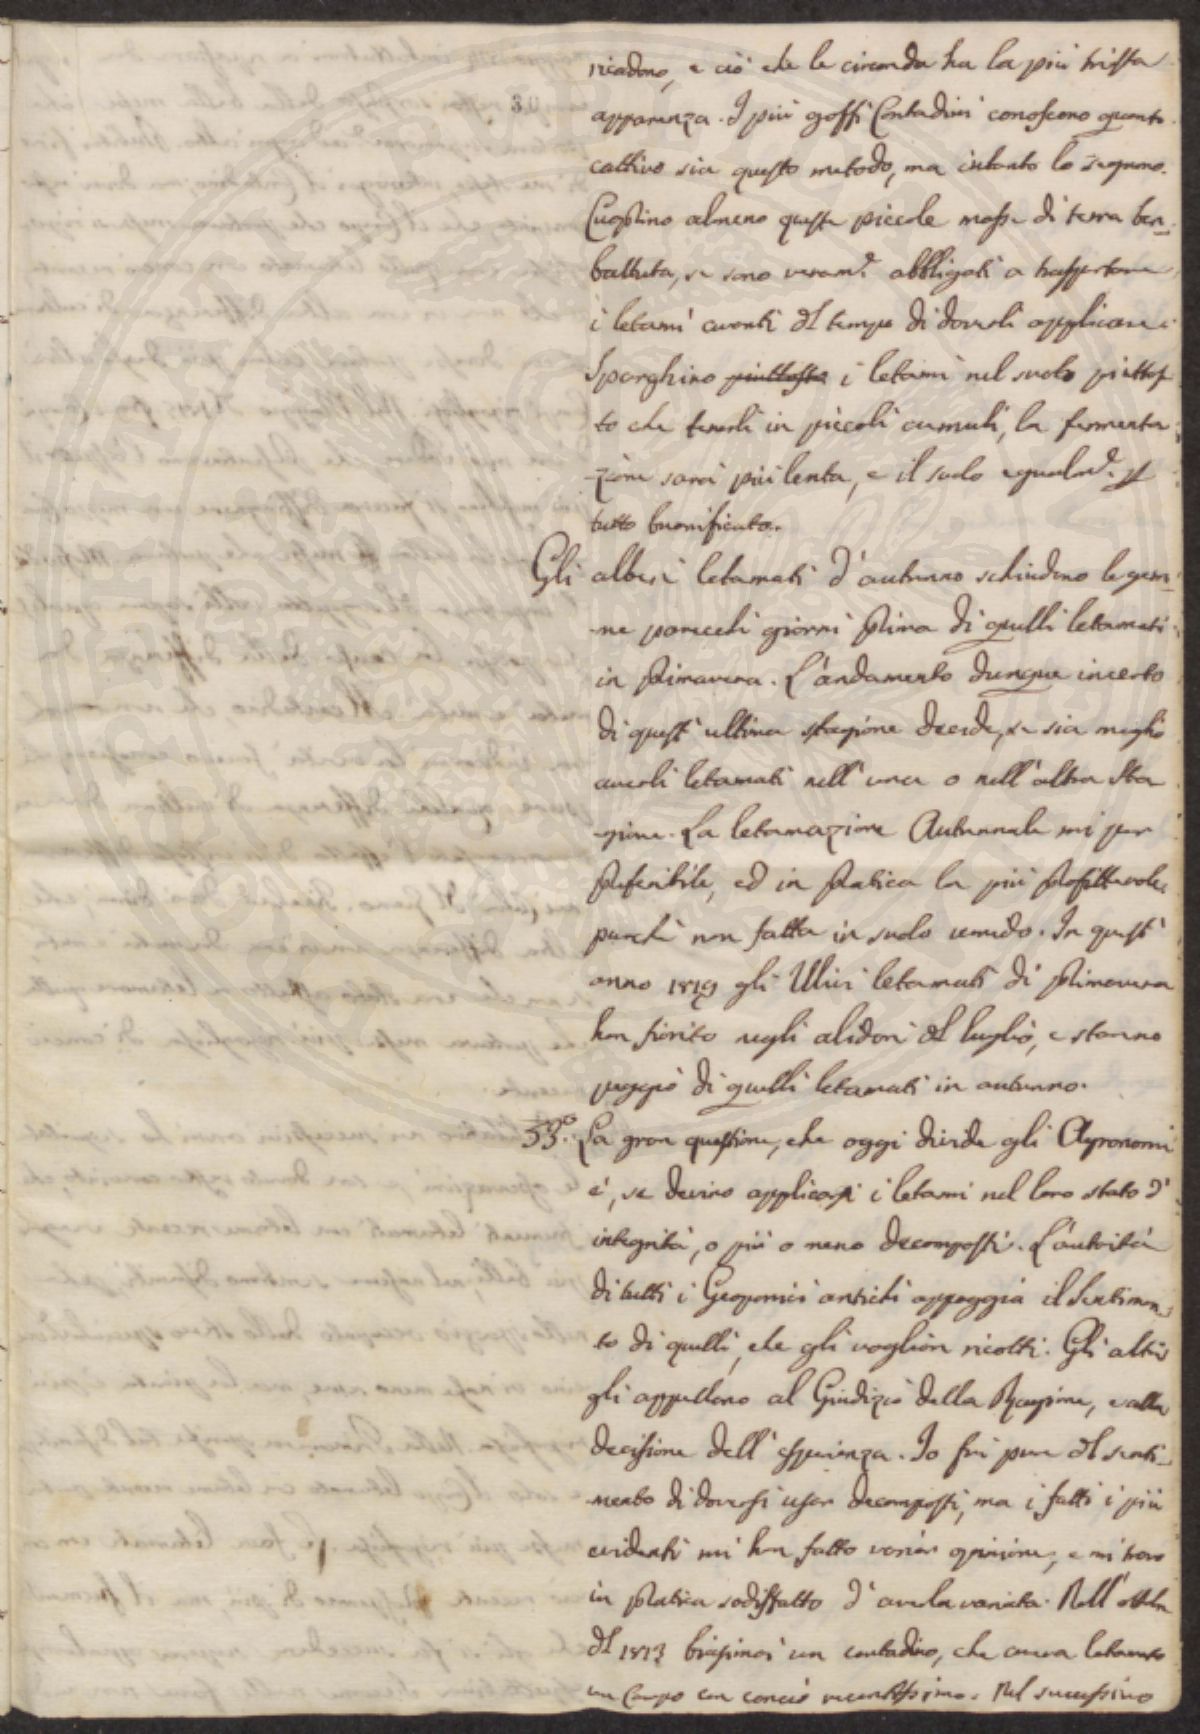 ricadono, e ciò che le circonda ha la più trista
30
apparenza. I più goffi Contadini conoscono quanto
cattivo sia questo metodo, ma intanto lo seguono.
Cuoprino almeno queste piccole masse di terra ben
battuta, se sono veramte. obbligati a trasportare
i letami avanti del tempo di doverli applicare.
Sparghino piuttosto i letami nel suolo piuttos
to che tenerli in piccoli cumuli, la fermenta
zione sarà più lenta, e il suolo egualmte. p
tutto buonificato.
Gli alberi letamati d'autunno schiudono le gem-
me parecchi giorni prima di quelli letamati
in Primavera. L'andamento dunque incerto
di quest'ultima stagione decide, se sia meglio
averli letamati nell'una o nell'altra sta
gione. La letamazione Autunnale mi par
preferibile, ed in pratica la più profittevole,
purchè non fatta in suolo umido. In quest'
anno 1819 gli Ulivi letamati di Primavera
han fiorito negli alidori del luglio, e stanno
peggio di quelli letamati in autunno.
53°. La gran questione, che oggi divide gli Agronomi
è, se devino applicarsi i letami nel loro stato d'
integrità, o più o meno decomposti. L'autorità
di tutti i Geoponici antichi appoggia il sentimen-
to di quelli, che gli voglion ricotti. Gli altri
gli appellono al Giudizio della Ragione, e alla
decisione dell'esperienza. Io fui pure del senti-
mento di doversi usar decomposti, ma i fatti i più
evidenti mi han fatto variar opinione, e mi trovo
in pratica sodisfatto d'averla variata. Nell'
del 1813 biasimai un contadino, che aveva letamato
un Campo con concio recentissimo. Nel successivo